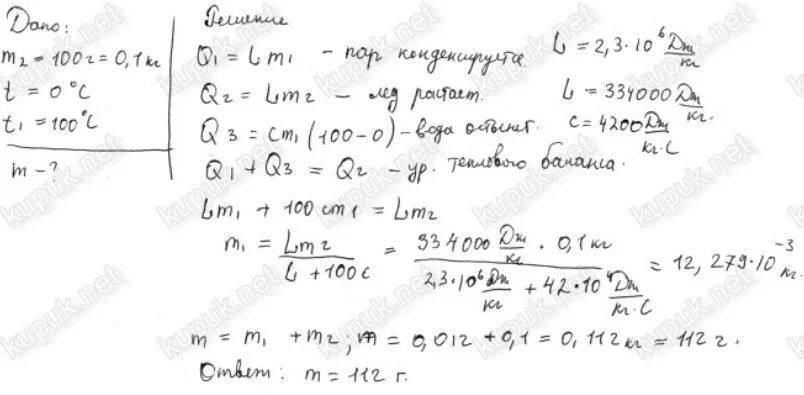 Дано:
m₂ = 100 г = 0,1 кг
t = 0°C
t₁ = 100°C
m - ?
Решение
Q₁ = L m₁ - пар конденсируется. L = 2,3·10⁶ Дж/кг
Q₂ = L m₂ - лед растает. L = 334000 Дж/кг.
Q₃ = cm₁ (100-0) - вода остынет. c = 4200 Дж/кг·C
Q₁ + Q₃ = Q₂ - ур. теплового баланса.
L m₁ + 100 cm₁ = L m₂
m₁ = L m₂ / L + 100c = 334000 Дж/кг · 0,1 кг / 2,3·10⁶ Дж/кг + 42·10⁴ Дж/кг·C = 12,279·10⁻³ кг.
m = m₁ + m₂; m = 0,012 + 0,1 = 0,112 кг = 112 г.
Ответ: m = 112 г.
kupuk.net